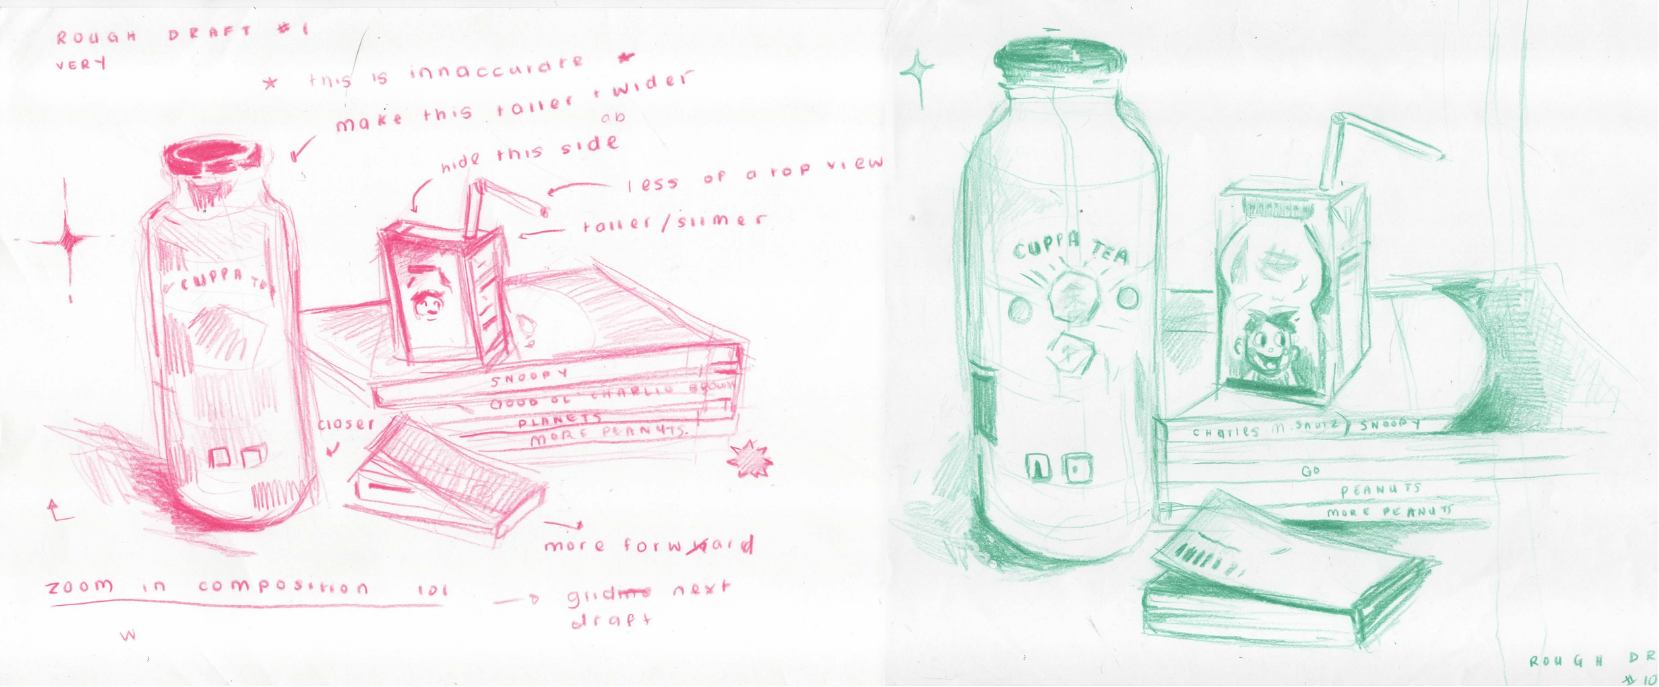 ROUGH DRAFT #1
VERY
* this is innaccurate *
make this taller + wider
ab
hide this side
less of a top view
taller/slimer
CUPPA TEA
SNOOPY
GOOD OL' CHARLIE BROWN
PLANETS
MORE PEANUTS
closer
more forward
zoom in composition 101
next
draft
W
CUPPA TEA
CHARlES M. SHULTZ) SNOOPY
GO
PEANUTS
MORE PEANUTS
ROUGH DR
#10